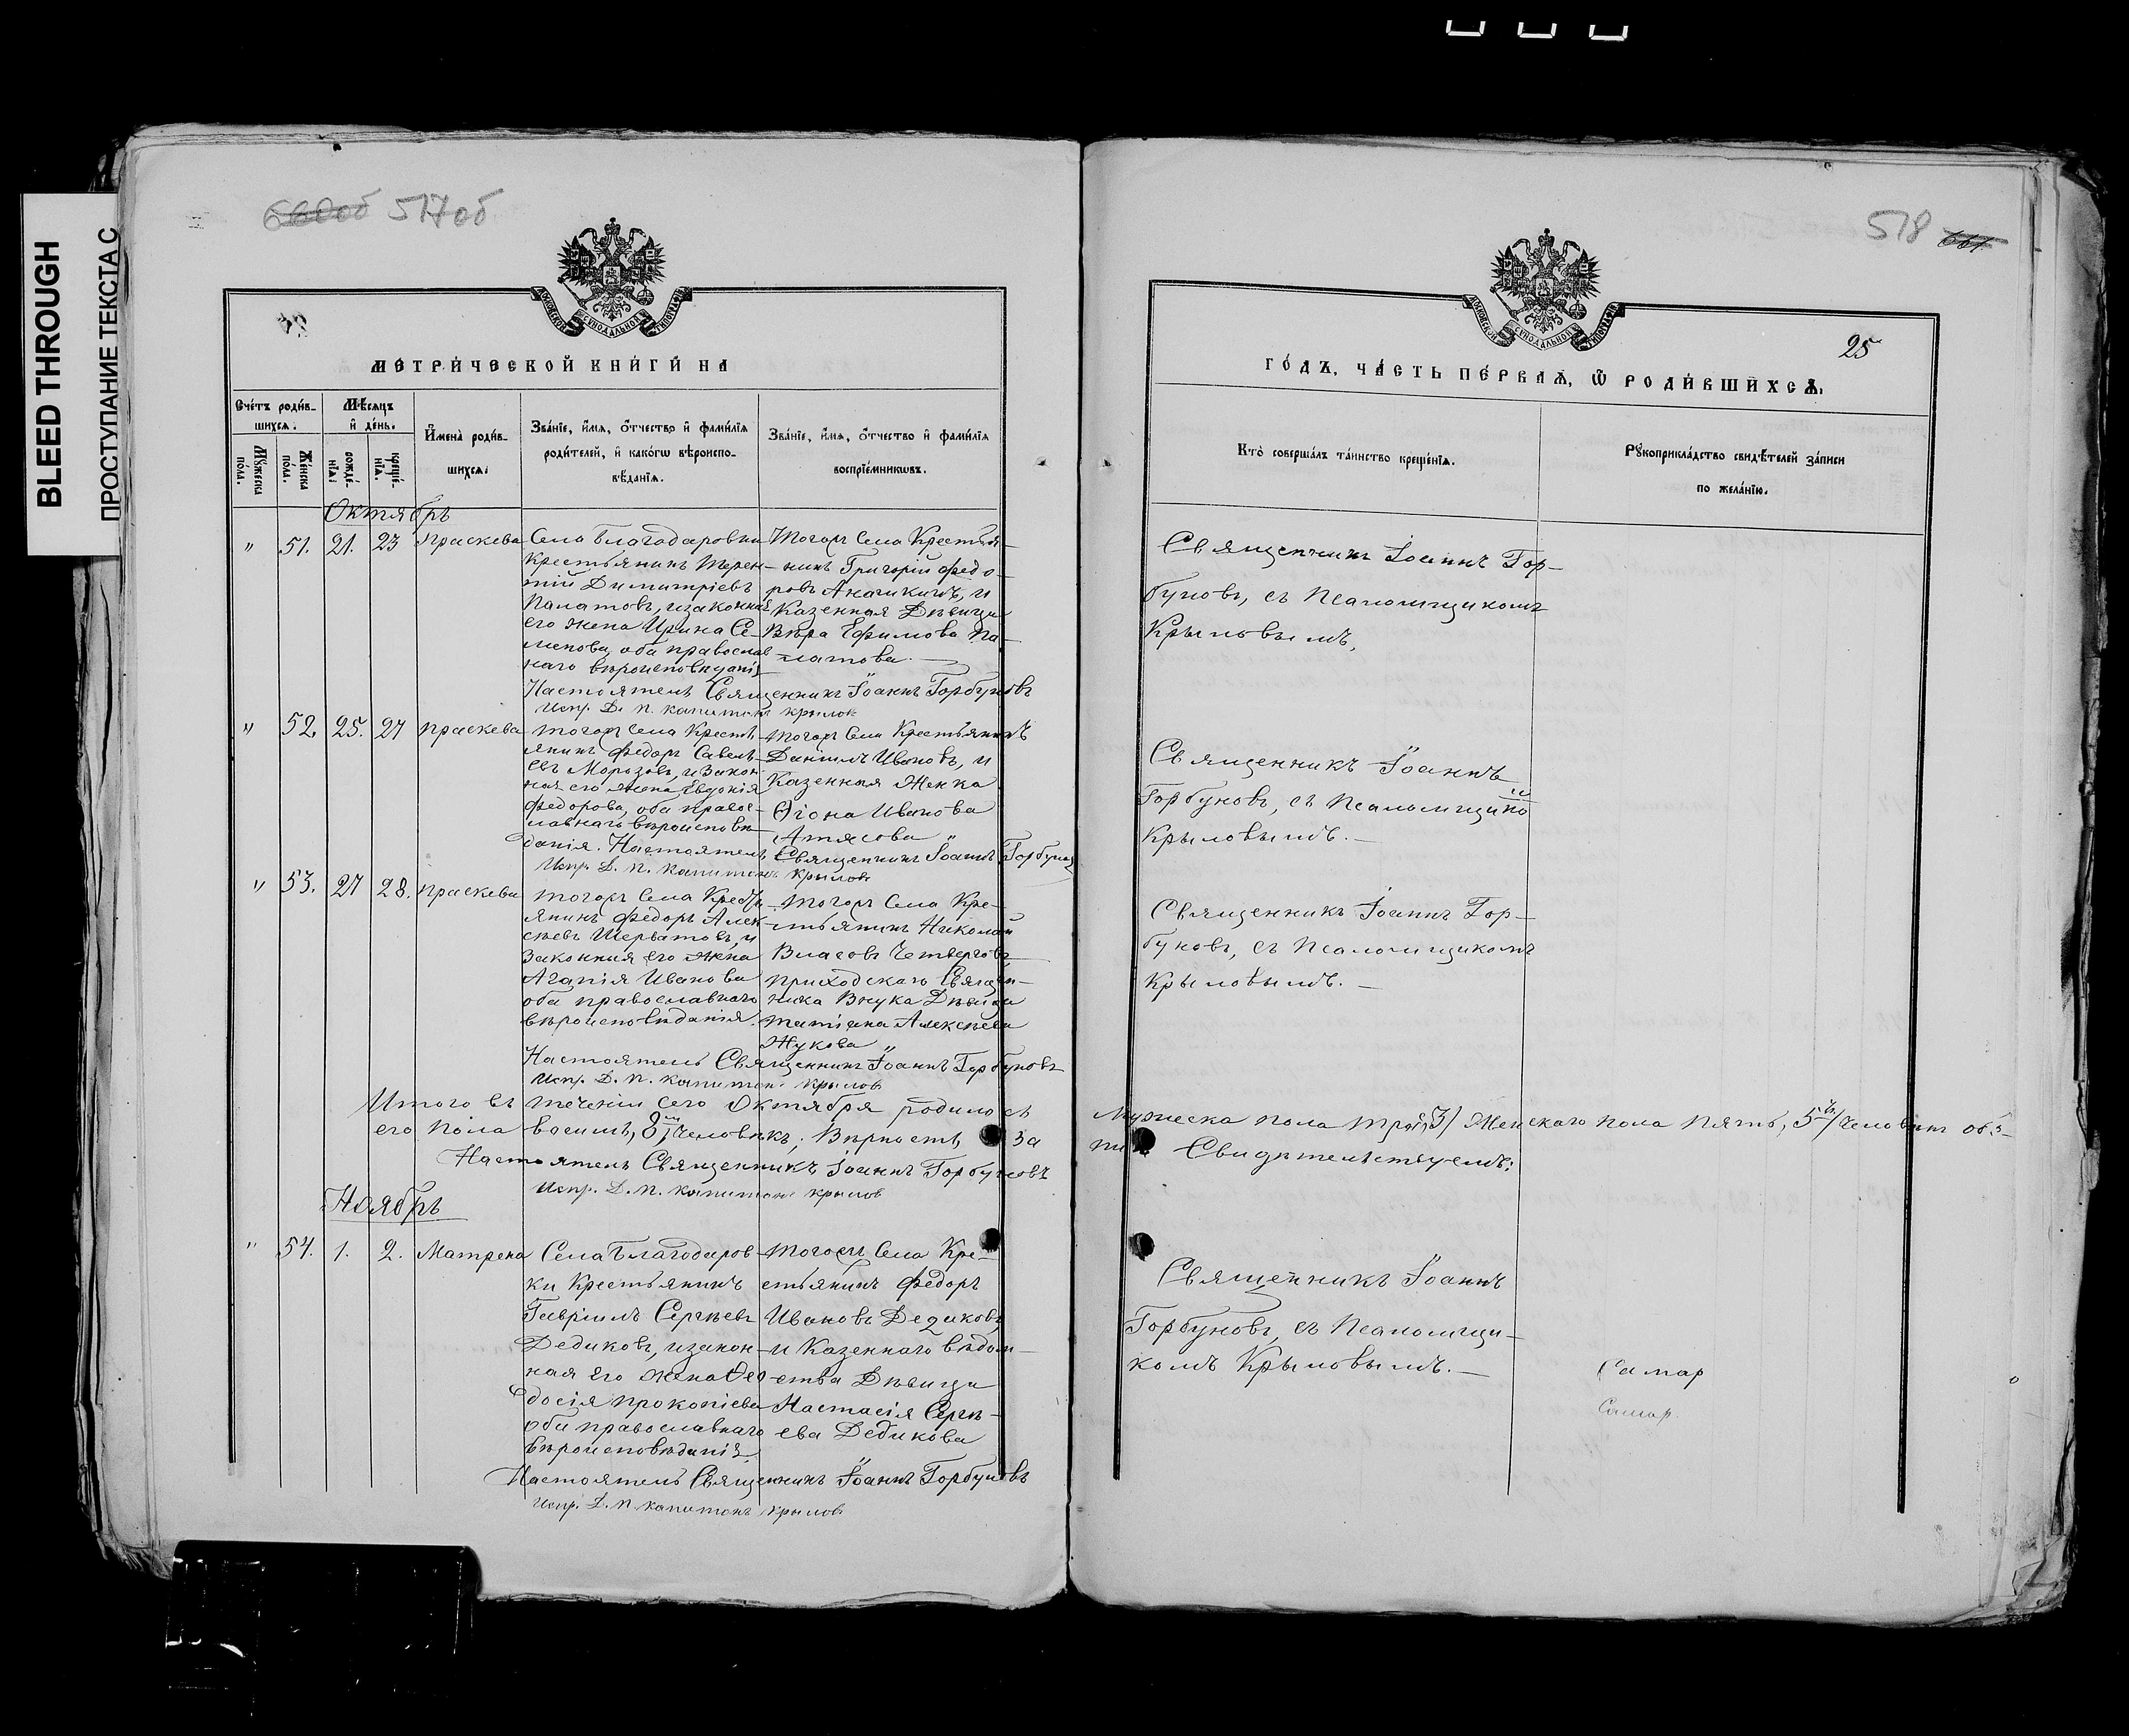 BLEED THROUGH
ПРОСТУПАНИЕ ТЕКСТА С
517об
МОСКОВСКОЙ СѴНОДАЛЬНОЙ ТИПОГРАФІИ
МЕТРИ́ЧЕСКОЙ КНИ́ГИ НА
Сче́тъ роди́в-
шихсѧ.
Мѣ́сѧцъ
и҆ де́нь.
Мꙋ́жеска по́ла.
Же́нска по́ла.
рожде́-нїѧ.
креще́-нїѧ.
И҆мена̀ роди́в-
шихсѧ.
Зва́нїе, и҆́мѧ, ѻ҆́тчество и҆ фами́лїѧ
роди́телей, и҆ како́гѡ вѣроиспо-
вѣ́данїѧ.
Зва́нїе, и҆́мѧ, ѻ҆́тчество и҆ фами́лїѧ
воспрїе́мникѡвъ.
Октябрь
" 51. 21. 23 Праскева
Села Благодаровки
Крестьянинъ Терен-
тій Димитріевъ
Палатовъ, и законная
его жена Ирина Се-
менова, оба православ
наго вѣроисповѣданія
Тогожъ Села Крестья-
нинъ Григорій Федо-
ровъ Аначикинъ, и
Казенная Дѣвица
Вѣра Ефимова Па-
латова.
Настоятель Священникъ Іоаннъ Горбуновъ
Испр. Д. п. Капитонъ Крылов
" 52. 25. 27 Праскева
Тогожъ Села Кресть-
янинъ Федоръ Савель-
евъ Морозовъ, и Закон-
ная его жена Евдокія
Федорова, оба правос-
лавнаго вѣроисповѣ-
данія. Настоятель Священникъ Іоаннъ Горбунов
Тогожъ Села Крестьянинъ
Даніилъ Ивановъ, и
Казенная Женка
Ѳіона Иванова
Атясова
Испр. Д. п. Капитонъ Крыловъ
" 53. 27 28. Праскева
Тогожъ Села Кресть-
янинъ Федоръ Алек-
сѣевъ Шерватовъ, и
Законная его жена
Агапія Иванова
оба православнаго
вѣроисповѣданія.
Тогожъ Села Кре-
стьянинъ Николай
Власовъ Четверговъ
приходскаго Священ-
ника Внука Дѣвица
Татіана Алексѣева
Жукова
Настоятель Священникъ Іоаннъ Горбуновъ
Испр. Д. п. Капитонъ Крылов
Итого въ теченіи сего Октября родилось
его Пола восимь, 8, Человѣкъ; Вѣрность за
Настоятель Священникъ Іоаннъ Горбуновъ
Испр. Д. п. Капитонъ Крылов
Ноябрь
" 54. 1. 2. Матрена
Села Благодаров-
ки Крестьянинъ
Гавріилъ Сергѣевъ
Дедиковъ, и закон-
ная его жена Ѳео-
досія Прокопіева
оба православнаго
вѣроисповѣданія.
Тогожъ Села Кре-
стьянинъ Федоръ
Ивановъ Дедиковъ,
и Казеннаго вѣдом-
ства Дѣвица
Настасія Сергѣ-
ева Дедикова
Настоятель Священникъ Іоаннъ Горбуновъ
Испр. Д. п. Капитонъ Крыловъ
518
25
МОСКОВСКОЙ СѴНОДАЛЬНОЙ ТИПОГРАФІИ
ГО́ДЪ, ЧА́СТЬ ПЕ́РВАѦ, Ѽ РОДИ́ВШИХСѦ.
Кто̀ соверша́лъ та́инство креще́нїѧ.
Рꙋкоприкла́дство свидѣ́телей за́писи
по жела́нїю.
Священникъ Іоаннъ Гор-
буновъ, съ Псаломщикомъ
Крыловымъ.
Священникъ Іоаннъ
Горбуновъ, съ Псаломщико
Крыловымъ.
Священникъ Іоаннъ Гор-
буновъ, съ Псаломщикомъ
Крыловымъ.
Мужеска пола три, 3/ Женскаго пола пять, 5/ Человѣкъ обо-
Свидѣтельствуемъ:
Священникъ Іоаннъ
Горбуновъ, съ Псаломщи-
комъ Крыловымъ.
Самар
Самар.